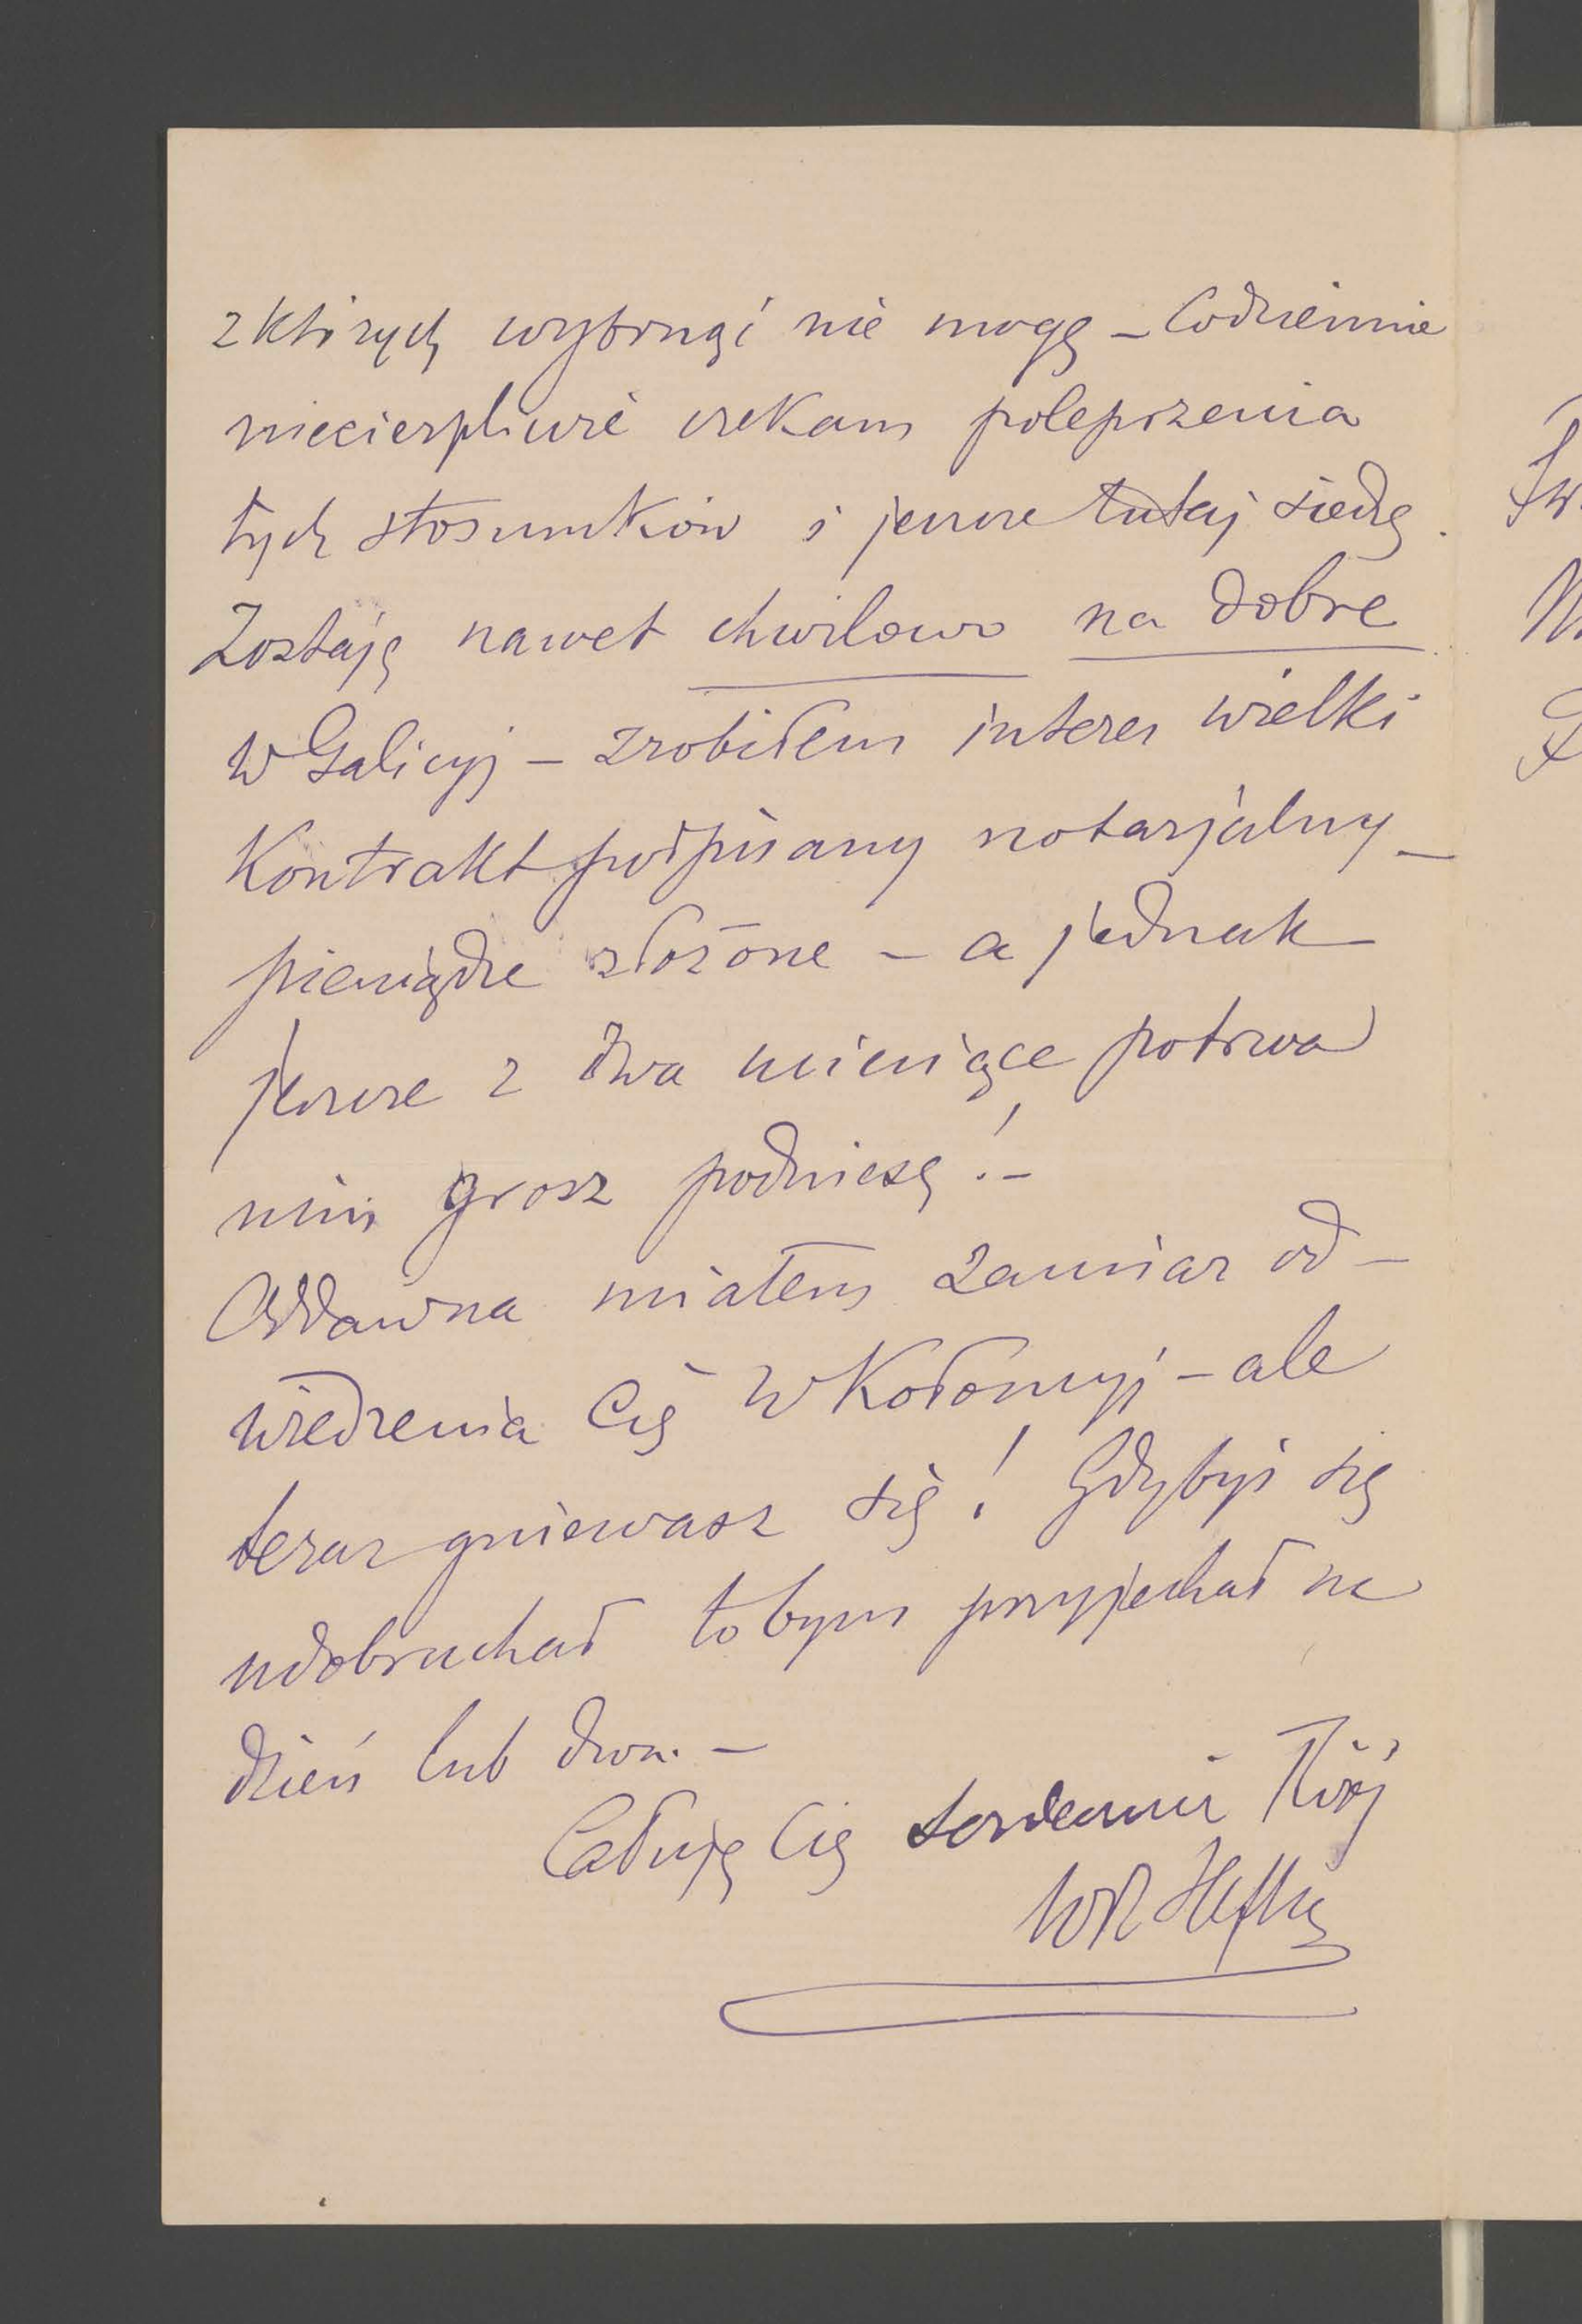 z których wybrnąć nie mogę – Codziennie
niecierpliwie czekam polepszenia
tych stosunków i jeszcze tutaj siedzę.
Zostaję nawet chwilowo na dobre
w Galicyj – zrobiłem interes wielki
Kontrakt podpisany notarjalny –
pieniądze złożone – a jednak
jeszcze z dwa miesiące potrwa
nim grosz podniosę! –
Oddawna miałem zamiar od–
wiedzenia Cię w Kołomyj – ale
teraz gniewasz się! Gdybyś się
udobruchał to bym przyjechał na
dzień lub dwa. –
Całuję Cię serdecznie Twój